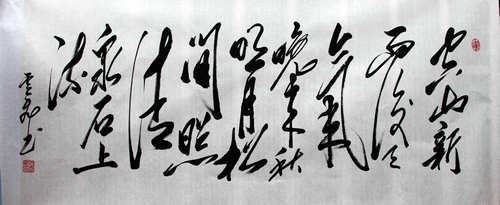 空山新
雨後天
氣
晚来秋
明月松
间照
清
泉石上
流